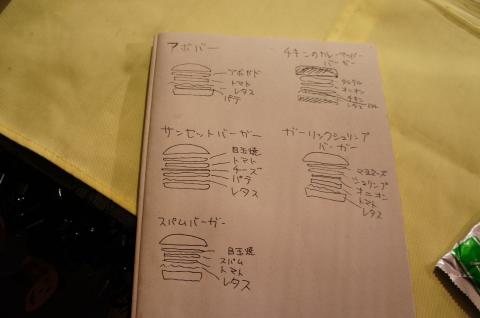 アボバー
アボカド
トマト
レタス
パテ
チキンのカレー
バーガー
オニオン
チキン
サンセットバーガー
目玉焼
トマト
チーズ
パテ
レタス
ガーリックシュリンプ
バーガー
マヨネーズ
シュリンプ
オニオン
トマト
レタス
スパムバーガー
目玉焼
スパム
トマト
レタス